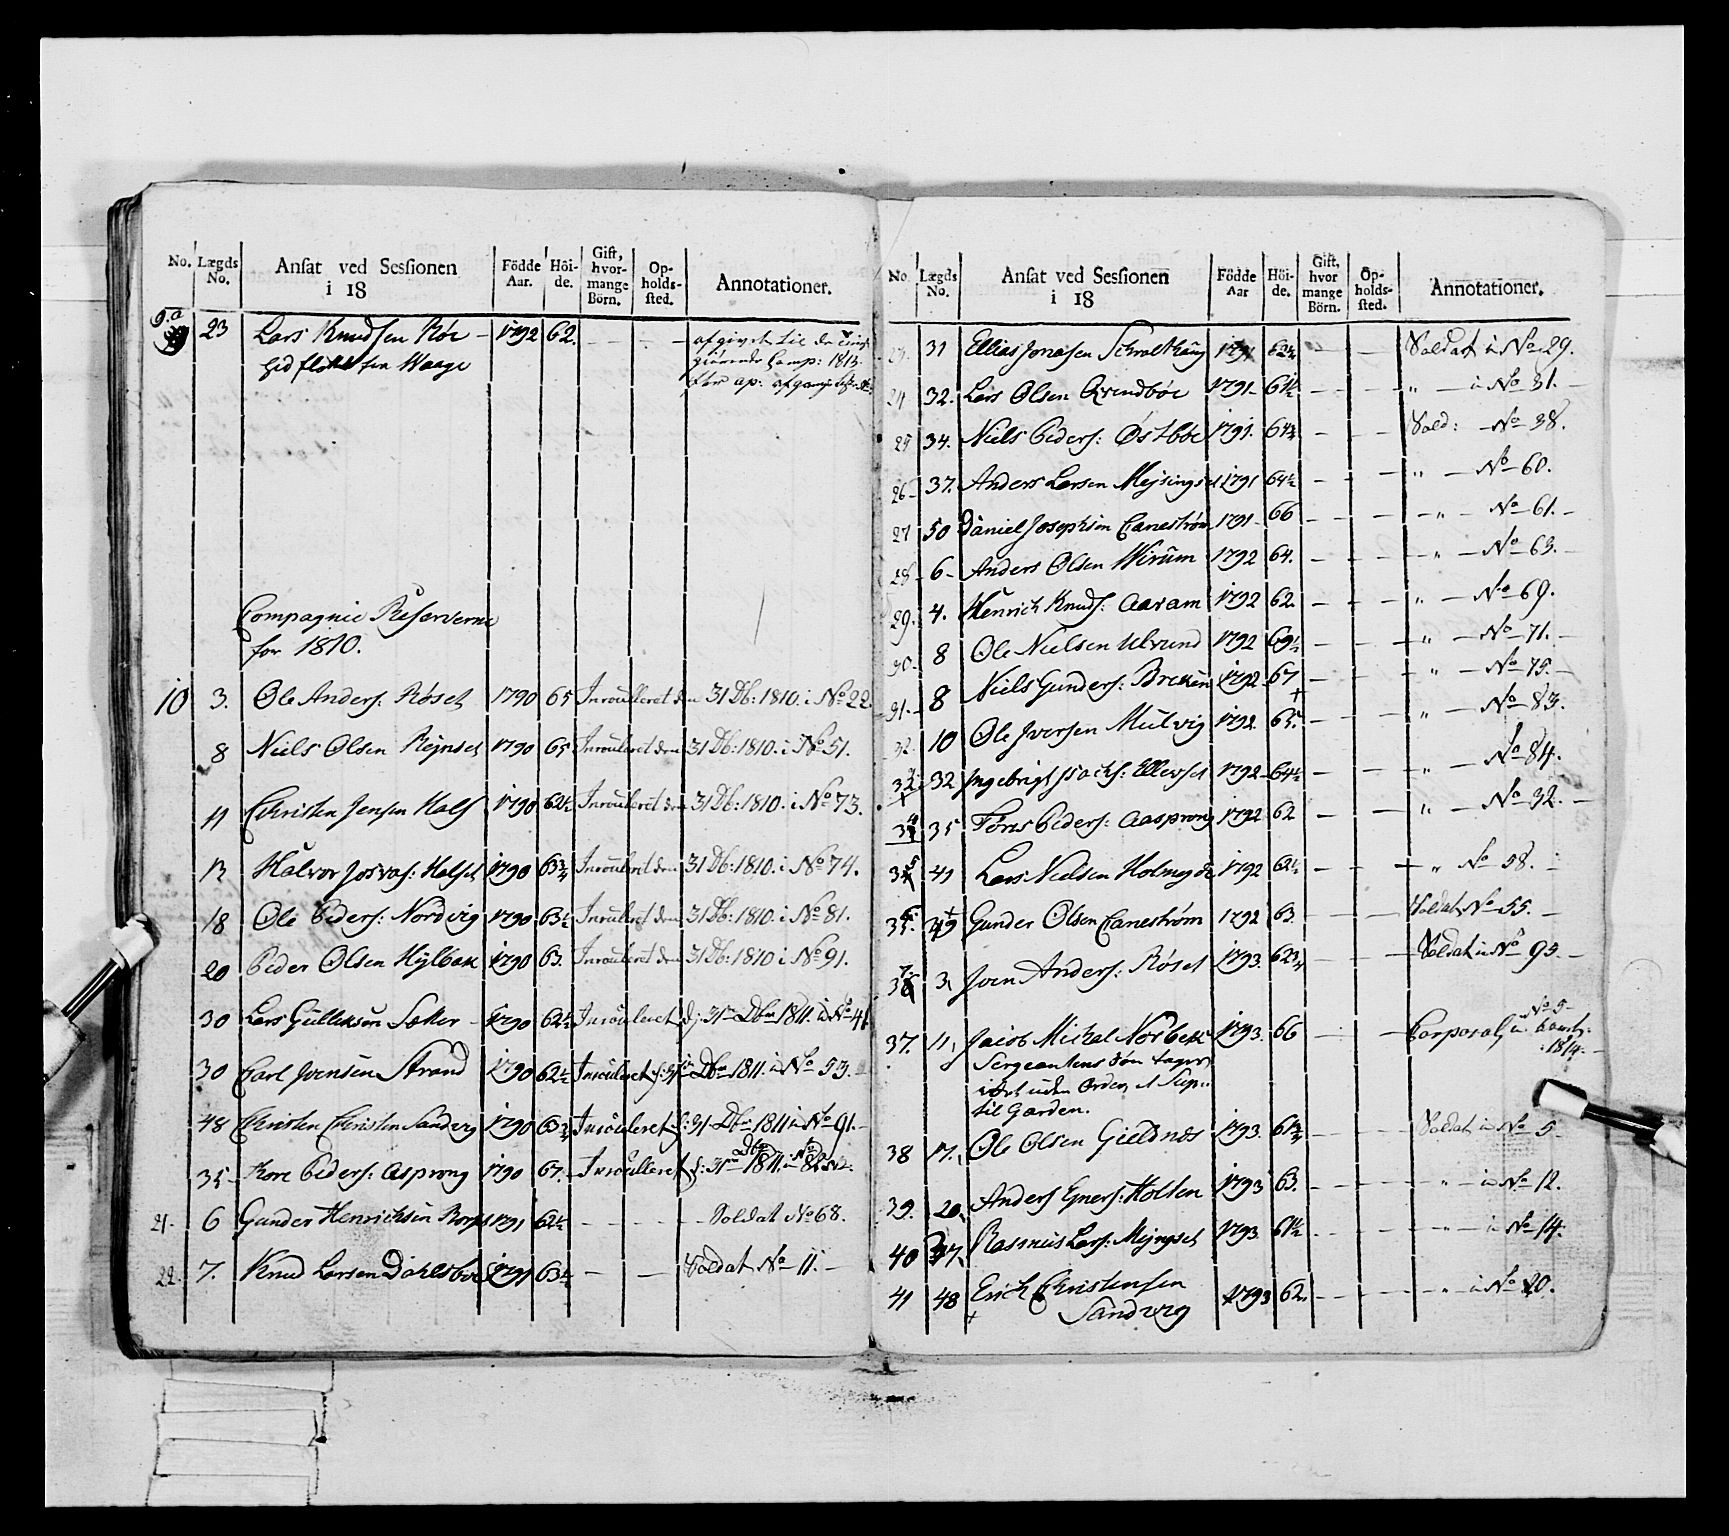 No. Lægds No. Ansat ved Sessionen i 18 Födde Aar. Höi-de. Gift, hvor-mange Börn. Op-holds-sted. Annotationer.
9.a 23 Lars Knudsen Röe - 1792 62. - - - afgivet til de
Waage 1813.
Compagnie Reserverne
for 1810.
10 3. Ole Anders: Röset 1790 65 Inroulleret den 31 Db: 1810. i No 22.
8 Niels Olsen Rejnset 1790 65 Inrouleret den 31 Db: 1810. i No 51.
11 Christen Jensen Hals 1790 62½ Inrouleret den 31 Db: 1810. i No 73.
12 Halvor Josvas: Halset 1790 63¾ Inrouleret den 31 Db: 1810. i No 74.
18 Ole Peders: Nordvig 1790 63½ Inrouleret den 31 Db: 1810. i No 81.
20 Peder Olsen Hylbak 1790 63. Inrouleret den 31 Db: 1810 i No 91.
30 Lars Gulleksön Sæter - 1790 62½ Inrouleret d: 31 Dbr 1811. i No 41
30 Carl Iversen Strand 1790 62½ Inrouleret d: 31 Dbr 1811. i No 53.
48 Christen Christensen Sandvig 1790 63¾ Inrouleret d: 31 Dbr 1811 i No 91.
35 Tore Peders: Asprong 1790 67. Inroulleret d: 31 Dbr 1811. i No 82
21. 6 Gunder Henrichsen 1791 62½ - - - - Soldat No 68.
22. 7. Knud Larsen Dahlsböe 1791 63½ - - Soldat No 11. -
No Lægds No. Ansat ved Sessionen i 18 Födde Aar Höi-de. Gift, hvor mange Börn. Op-holds-sted. Annotationer.
23. 31 Ellias Jonasen 1791 62½ - - Soldat i No 29.
24 32. Lars Olsen Qvendböe 1791 61½ - - - " - i No 31. -
25 34. Niels Peders: Östböe 1791. 64¾ - - - Sold: - No 38.
26 37. Anders Larsen Mejsingset 1791 64½ - - - " - No 60.
27 50 Daniel Josephsen Caneström 1791 66 - - - - " - No 61. -
28 6 - Anders Olsen Wirum 1792 64. - - - - " - No 63. -
29. 4. Henrich Knuds: Aaram 1792 62. - - - " - No 69.
30. 8 Ole Nielsen Ulvund 1792 69½ - - - " - No 71. -
31. 8 Niels Gunders: Brekken 1792 67 - - - " - No 75. -
32. 10 Ole Iversen Mulvig 1792 65. - - - " - No 83.
33 32 Ingebrigt Isachs: Ellevset 1792 64½ - - - " - No 84.
34 35 Töris Peders: Aasprong 1792 62 - - - " - No 32. -
35 41 Lars Nielsen 1792 62½ - - - " No 58. -
36 49 Gunder Olsen Caneström 1792 63. - - - Soldat No 55. -
37 3. Iven Anders: Röset 1793. 62¾ - - - Soldat i No 95. -
37. 11. Jacob Michal Norbek 1793. 66 - - Corporal i No 5 - Comp: 1814. -
Sergeantens Sön tagen
uden Orden
til Garden.
38 17. Ole Olsen Gieldnæs 1793. 61¾ - - - Soldat i No 5
39. 20. Anders Ejners: Holten 1793 63. - - - - " - i No 12.
40 37. Rasmus Lars: Mejngset 1793. 61½ - - - - " - i No 14.
41 48 Erich Christensen
Sandvig 1793 62. - - - - " - i No 20.